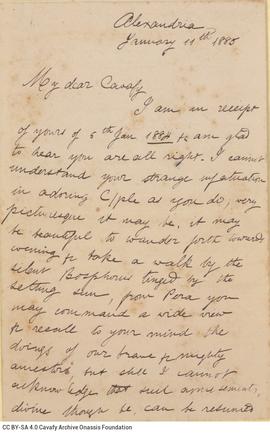 Alexandria
January 11th 1885
My dear Cavafy
I am in receipt
of yours of 5th Jan 1884 & am glad
to hear you are all right. I cannot
understand your strange infatuation
in adoring C/ple as you do, very
picturesque it may be, it may
be beautiful to wander forth towards
evening & take a walk by the
silent Bosphorus tinged by the
setting sun, from Pera you
may command a wide view
& recall to your mind the
doings of our brave & mighty
ancestors, but still I cannot
acknowledge that such amusements,
divine though be, can be
CC BY-SA 4.0 Cavafy Archive Onassis Foundation